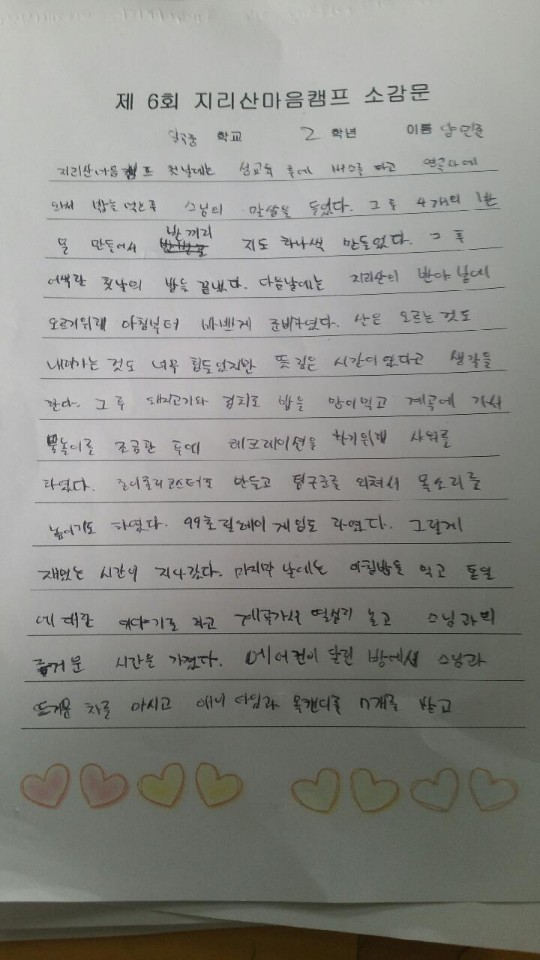 제 6회 지리산마음캠프 소감문
학교 2 학년 이름 양민준
지리산마음캠프 첫날에는 성교육 후에 버스를 타고 연곡사에
와서 밥을 먹은후 스님의 말씀을 들었다. 그 후 4개의 1반
을 만들어서 반끼리 지도 하나씩 만들었다. 그 후
어색한 첫날의 밤을 끝냈다. 다음날에는 지리산의 반야봉에
오르기위해 아침부터 바쁘게 준비하였다. 산은 오르는것도
내려가는 것도 너무 힘들었지만 뜻깊은 시간이였다고 생각을
한다. 그 후 돼지고기와 김치로 밥을 많이먹고 계곡에 가서
물놀이를 조금한 후에 레크레이션을 하기위해 샤워를
하였다. 롤러코스터도 만들고 탑구호를 외쳐서 목소리를
높이기도 하였다. 99초 릴레이 게임도 하였다. 그렇게
재밌는 시간이 지나갔다. 마지막 날에는 아침밥을 먹고 통일
에 대한 이야기도 하고 계곡가서 열심히 놀고 스님과의
즐거운 시간을 가졌다. 에어컨이 달린 방에서 스님과
뜨거운 차를 마시고 애니타임과 목캔디를 n개를 받고